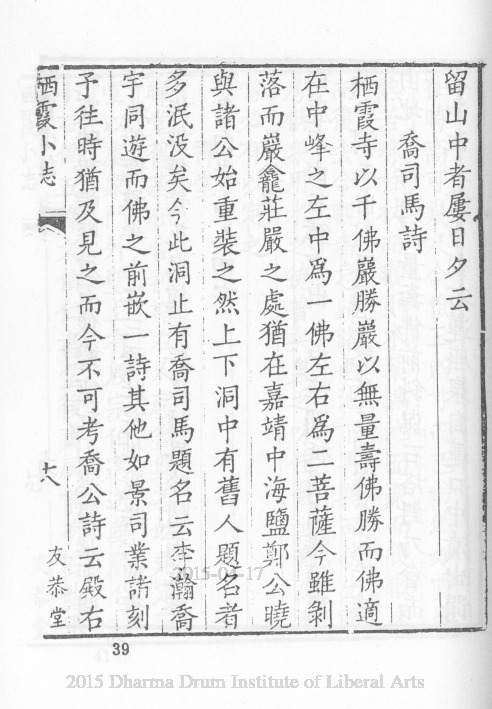 留山中者屢日夕云
喬司馬詩
栖霞寺以千佛巖勝巖以無量壽佛勝而佛適
在中峰之左中爲一佛左右爲二菩薩今雖剝
落而巖龕莊嚴之處猶在嘉靖中海鹽鄭公曉
與諸公始重裝之然上下洞中有舊人題名者
多泯没矣今此洞止有喬司馬題名云李瀚喬
宇同遊而佛之前嵌一詩其他如景司業諸刻
子往時猶及見之而今不可考喬公詩云殿右
栖霞小志
十八
友恭堂
2015-01-17
39
2015 Dharma Drum Institute of Liberal Arts